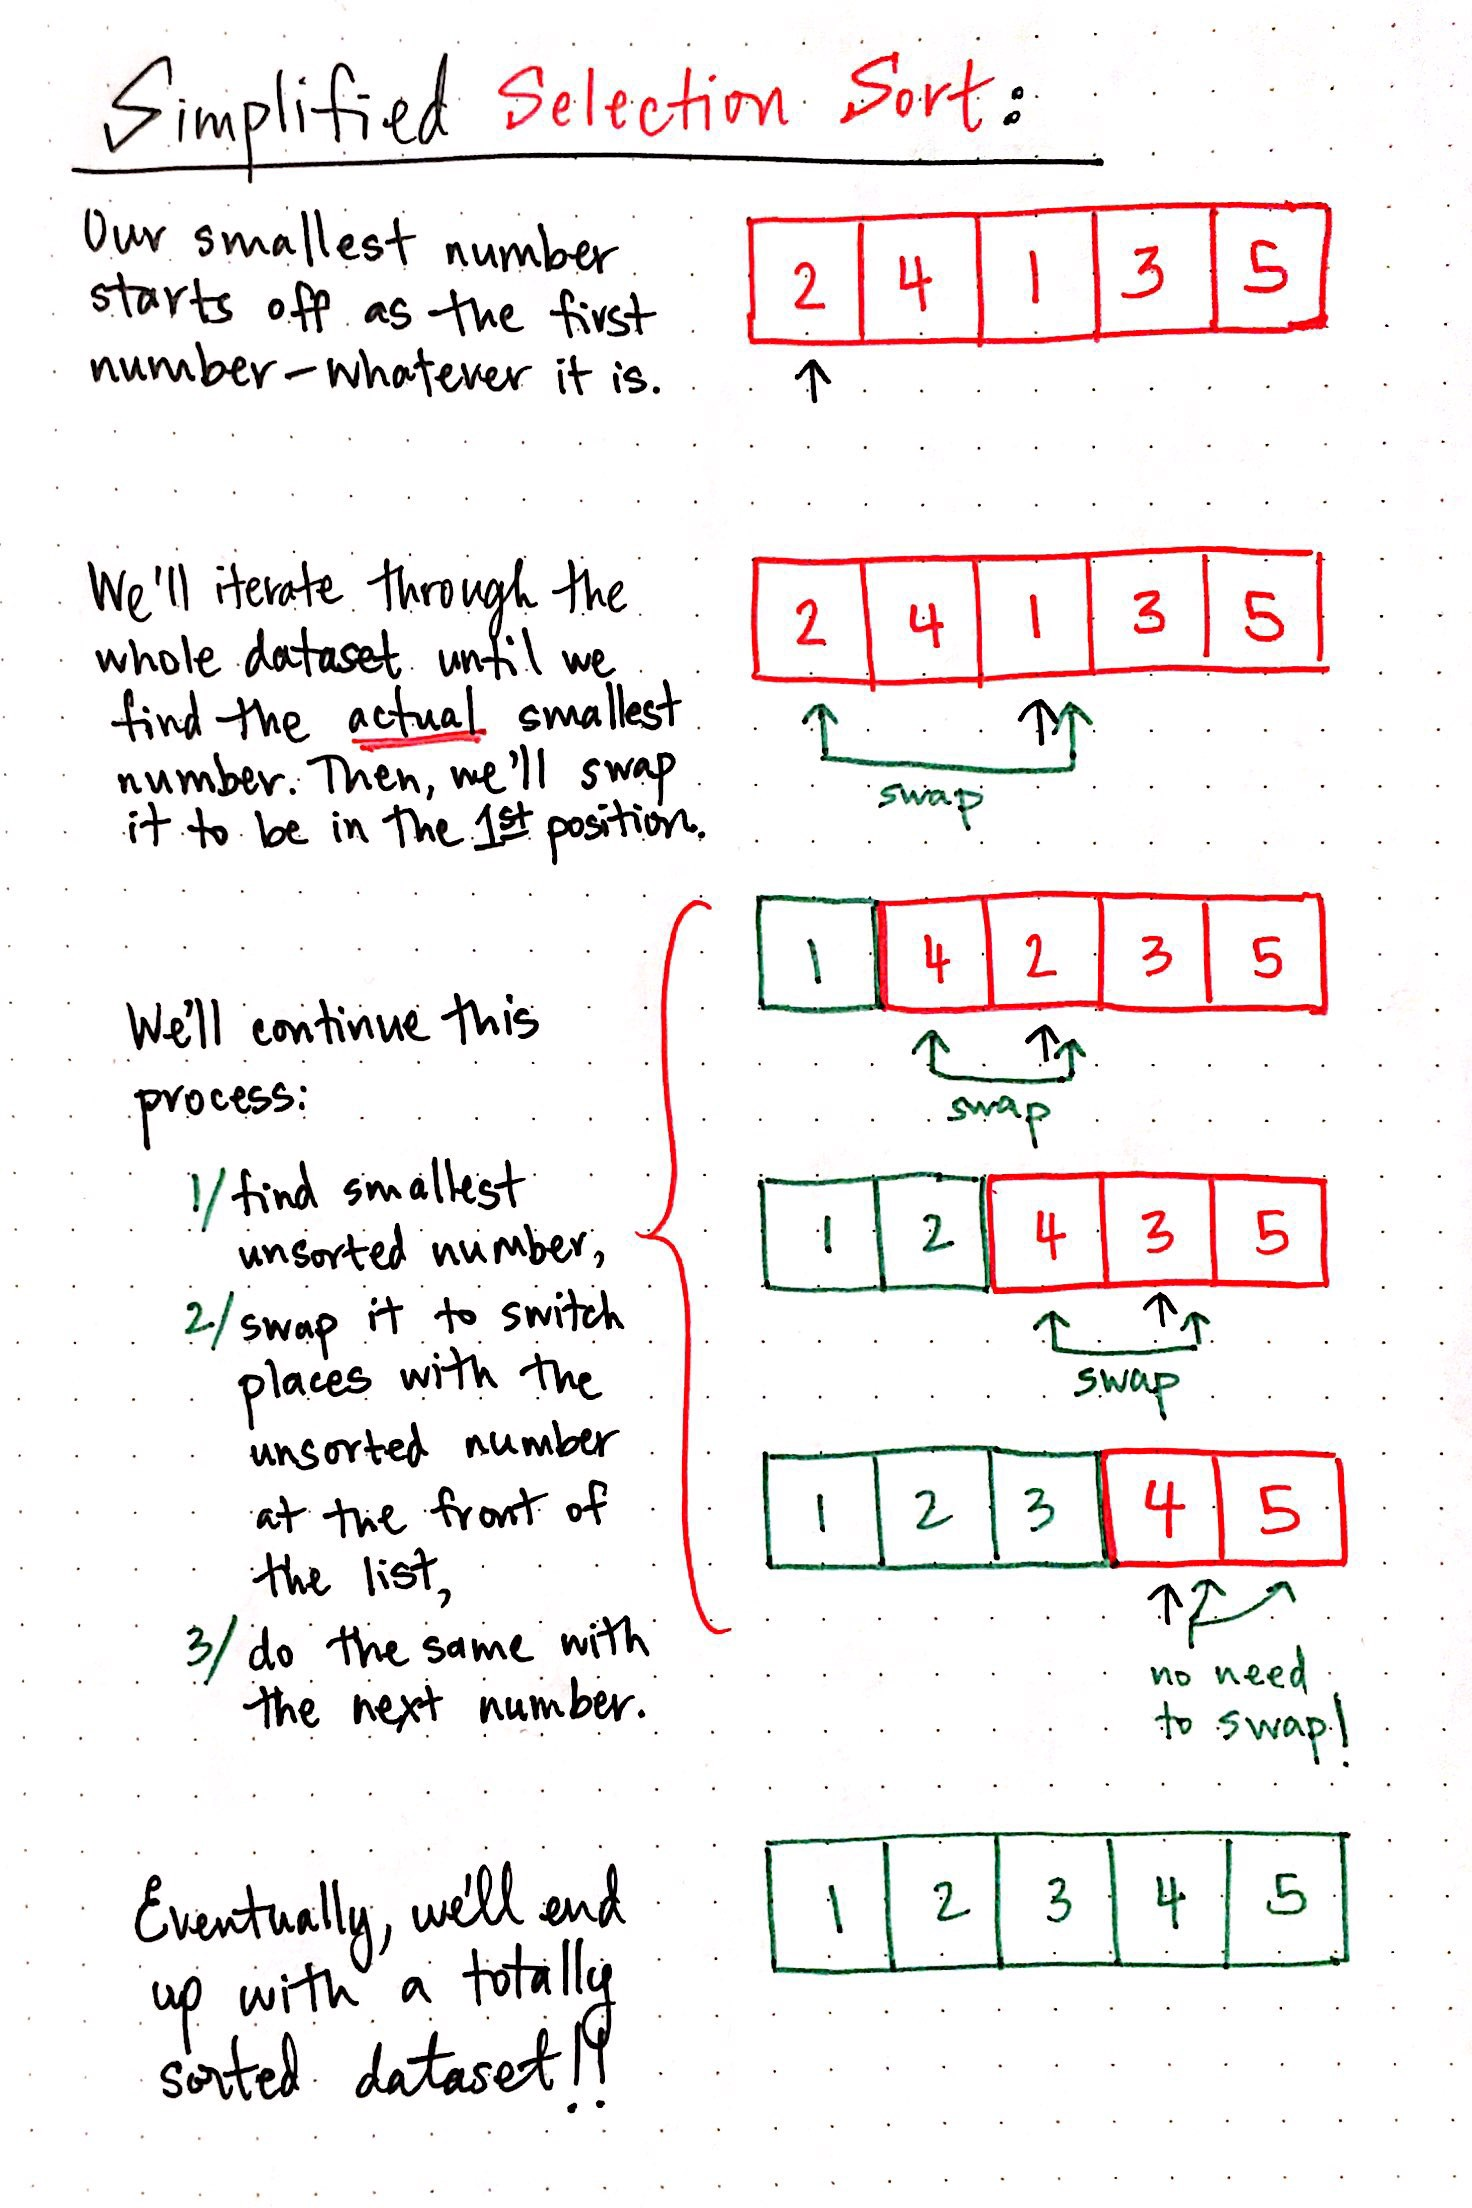 Simplified Selection Sort:
Our smallest number
starts off as the first
number-whatever it is.
2 4 1 3 5
We'll iterate through the
whole dataset until we
find the actual smallest
number. Then, we'll swap
it to be in the 1st position.
2 4 1 3 5
swap
We'll continue this
process:
1/ find smallest
unsorted number,
2/ swap it to switch
places with the
unsorted number
at the front of
the list,
3/ do the same with
the next number.
1 4 2 3 5
swap
1 2 4 3 5
swap
1 2 3 4 5
no need
to swap!
Eventually, we'll end
up with a totally
sorted dataset!!
1 2 3 4 5